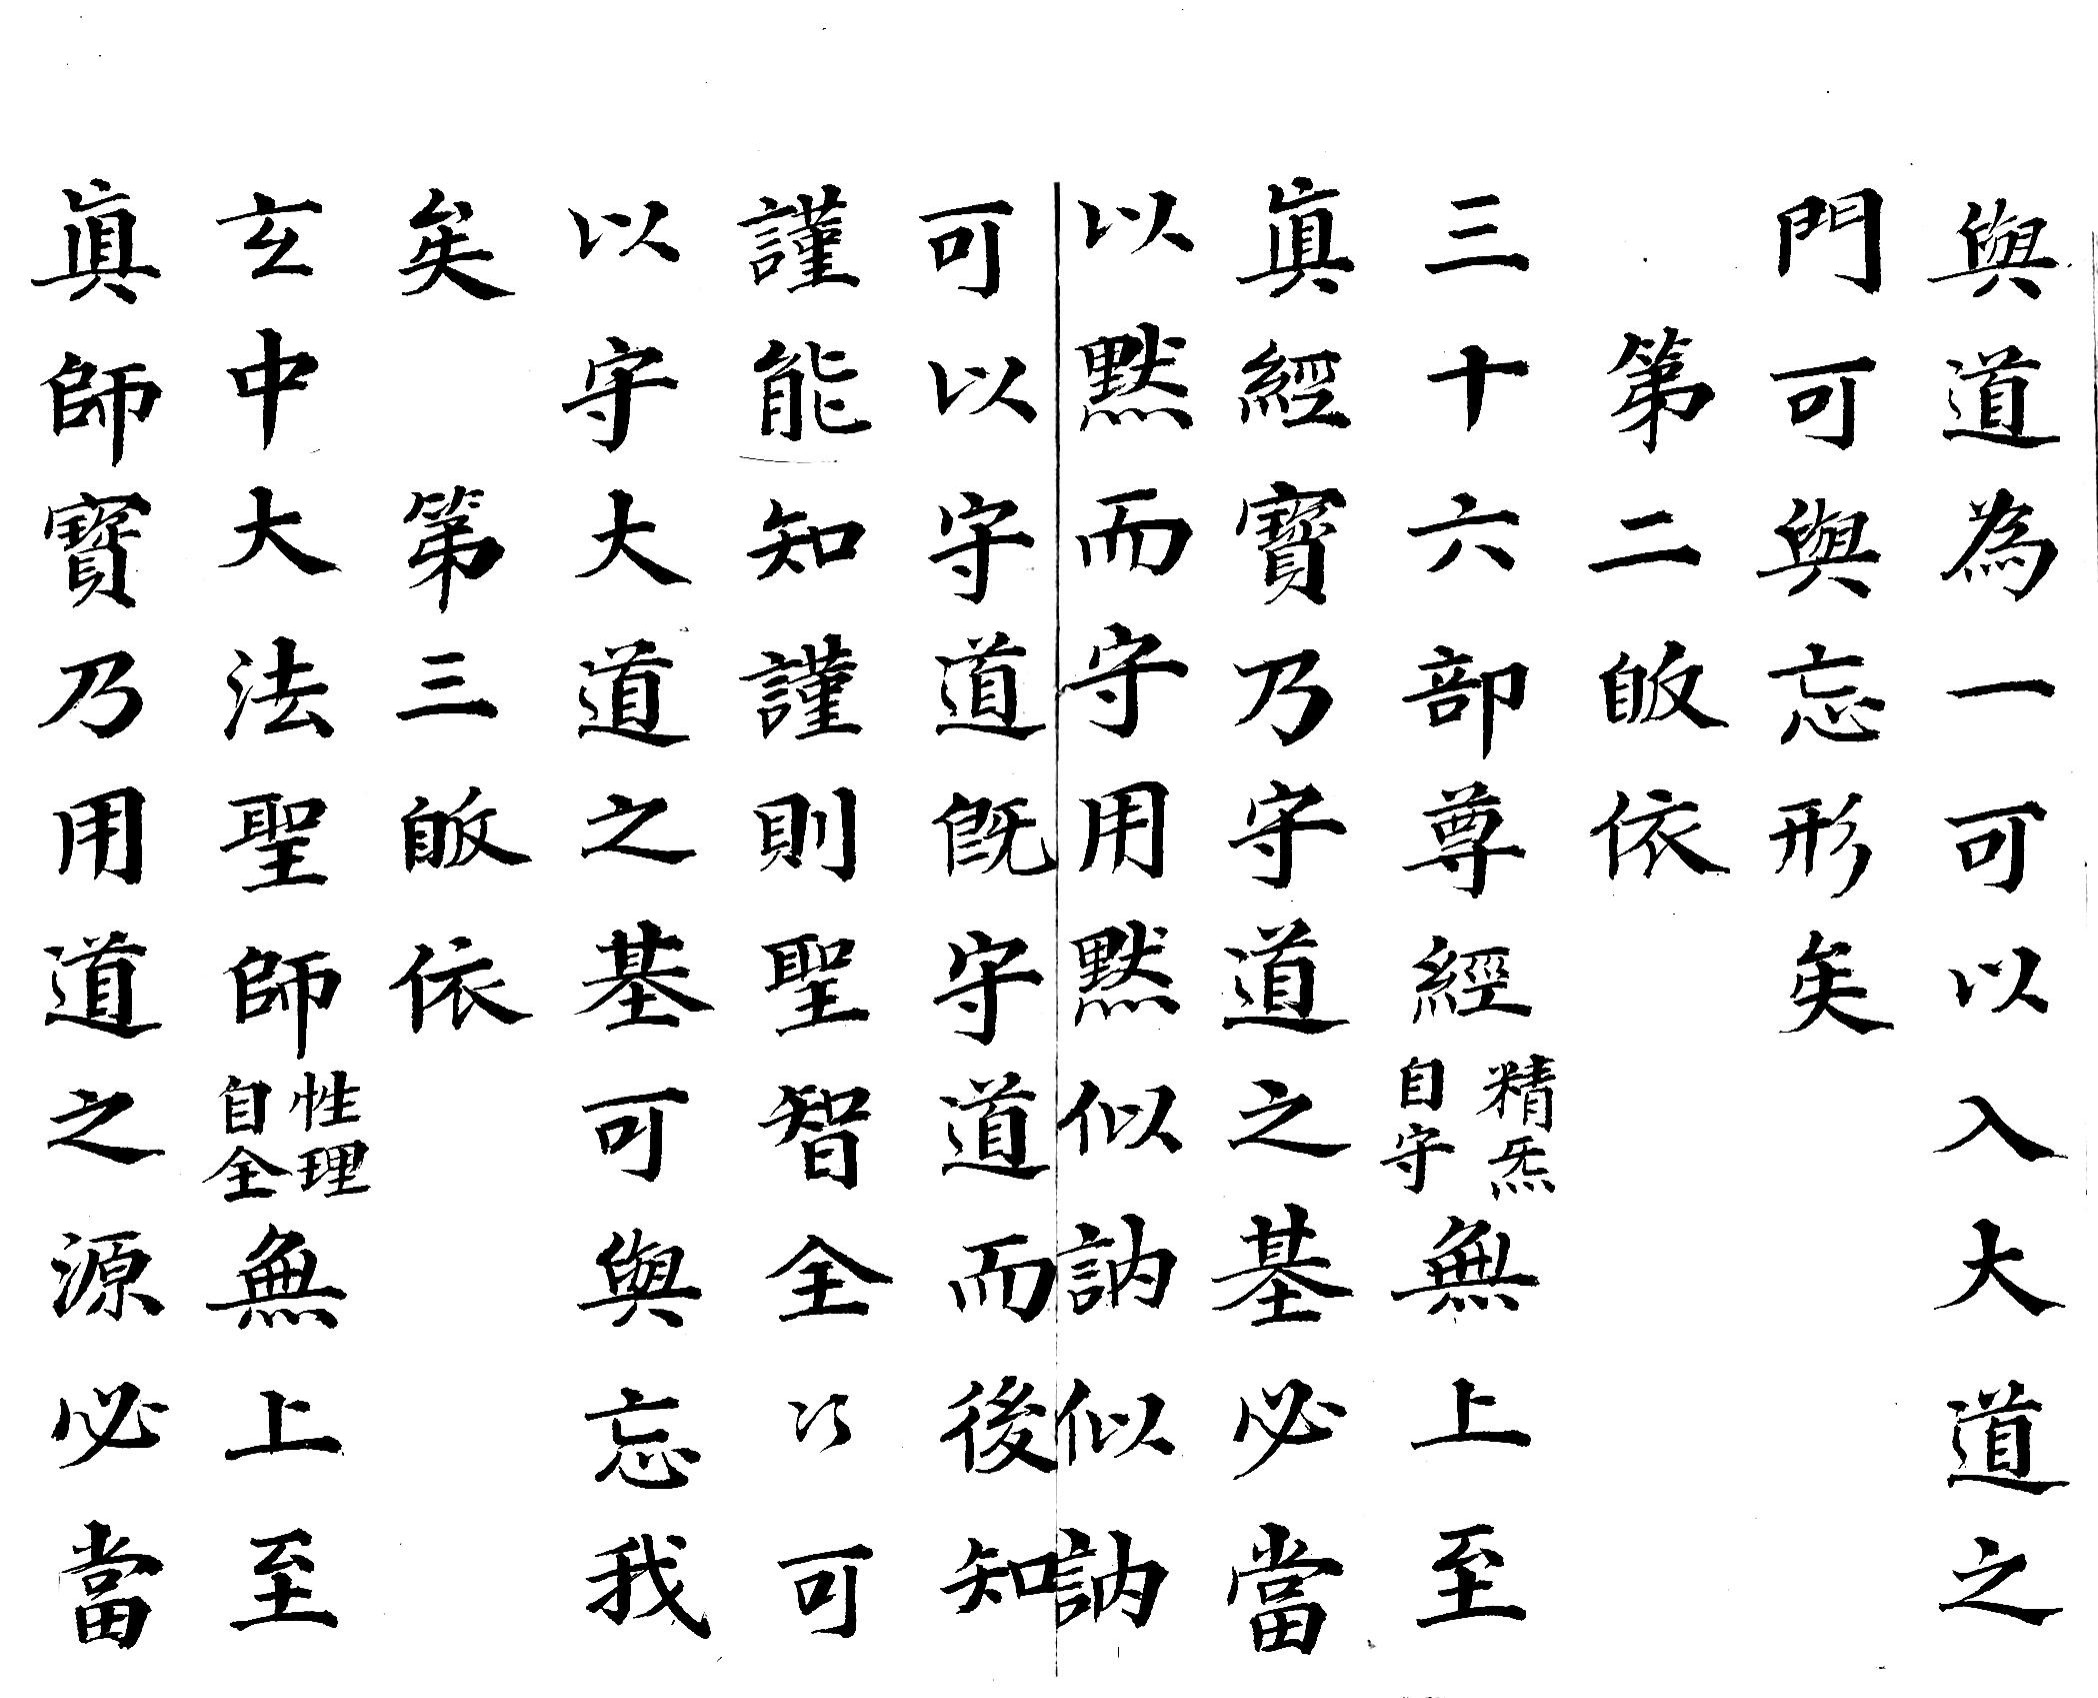 與道為一可以入大道之
門可與忘形矣
第二皈依
三十六部尊經精炁自守無上至
眞經寳乃守道之基必當
以默而守用默似訥似訥
可以守道既守道而後知
謹能知謹則聖智全以可
以守大道之基可與忘我
矣 第三皈依
玄中大法聖師性理自全無上至
眞師寳乃用道之源必當